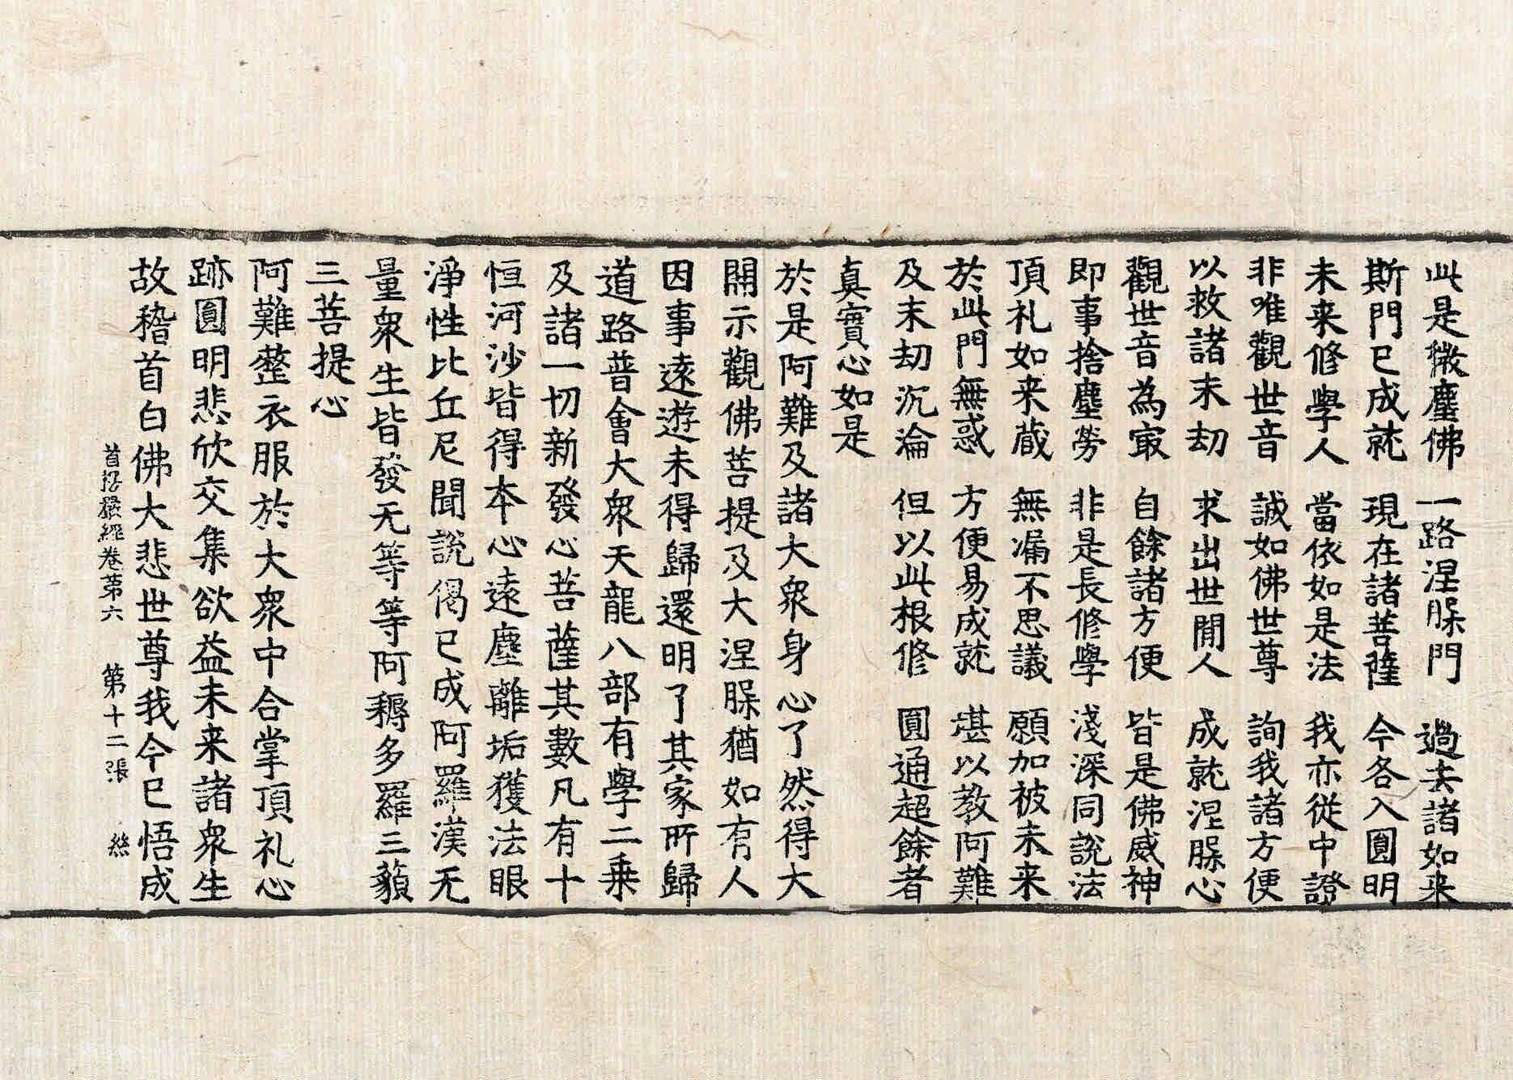 此是微塵佛 一路涅脲門 過去諸如来
斯門已成就 現在諸菩薩 今各入圓明
未来修學人 當依如是法 我亦從中證
非唯觀世音 誠如佛世尊 詢我諸方便
以救諸末劫 求出世閒人 成就涅脲心
觀世音為㝡 自餘諸方便 皆是佛威神
即事捨塵勞 非是長修學 淺深同說法
頂礼如来蔵 無漏不思議 願加被未来
於此門無惑 方便易成就 堪以教阿難
及末劫沉淪 但以此根修 圓通超餘者
真實心如是
於是阿難及諸大衆身心了然得大
開示觀佛菩提及大涅脲猶如有人
因事遠遊未得歸還明了其家所歸
道路普會大衆天龍八部有學二乗
及諸一切新發心菩薩其數凡有十
恒河沙皆得本心遠塵離垢獲法眼
淨性比丘尼聞說偈已成阿羅漢无
量衆生皆發无等等阿耨多羅三藐
三菩提心
阿難整衣服於大衆中合掌頂礼心
跡圓明悲欣交集欲益未来諸衆生
故稽首白佛大悲世尊我今已悟成
首楞嚴經卷第六 第十二張